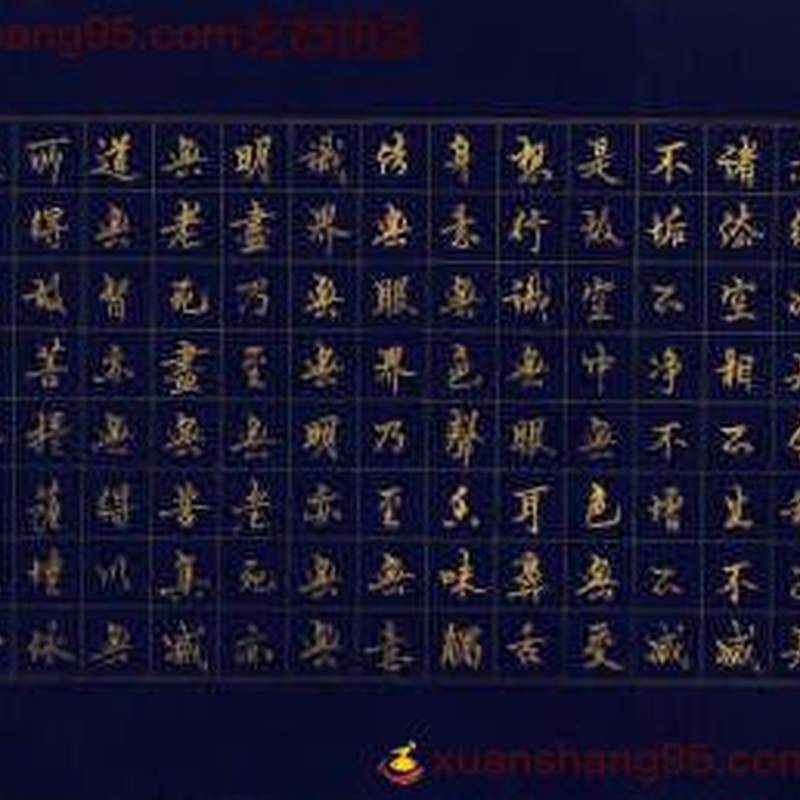 ang95.com
諸法空相不生不滅
不垢不净不增不减
是故空中無色無受
想行識無眼耳鼻舌
身意無色聲香味觸
法無眼界乃至無意
識界無無明亦無無
明盡乃至無老死亦
無老死盡無苦集滅
道無智亦無得以無
所得故菩提薩埵依
xuanshang95.com